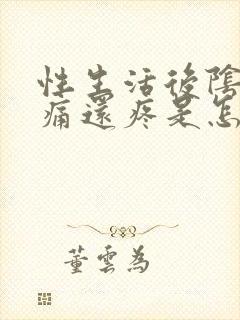 性生活後陰
痛還疼是怎
董雲為